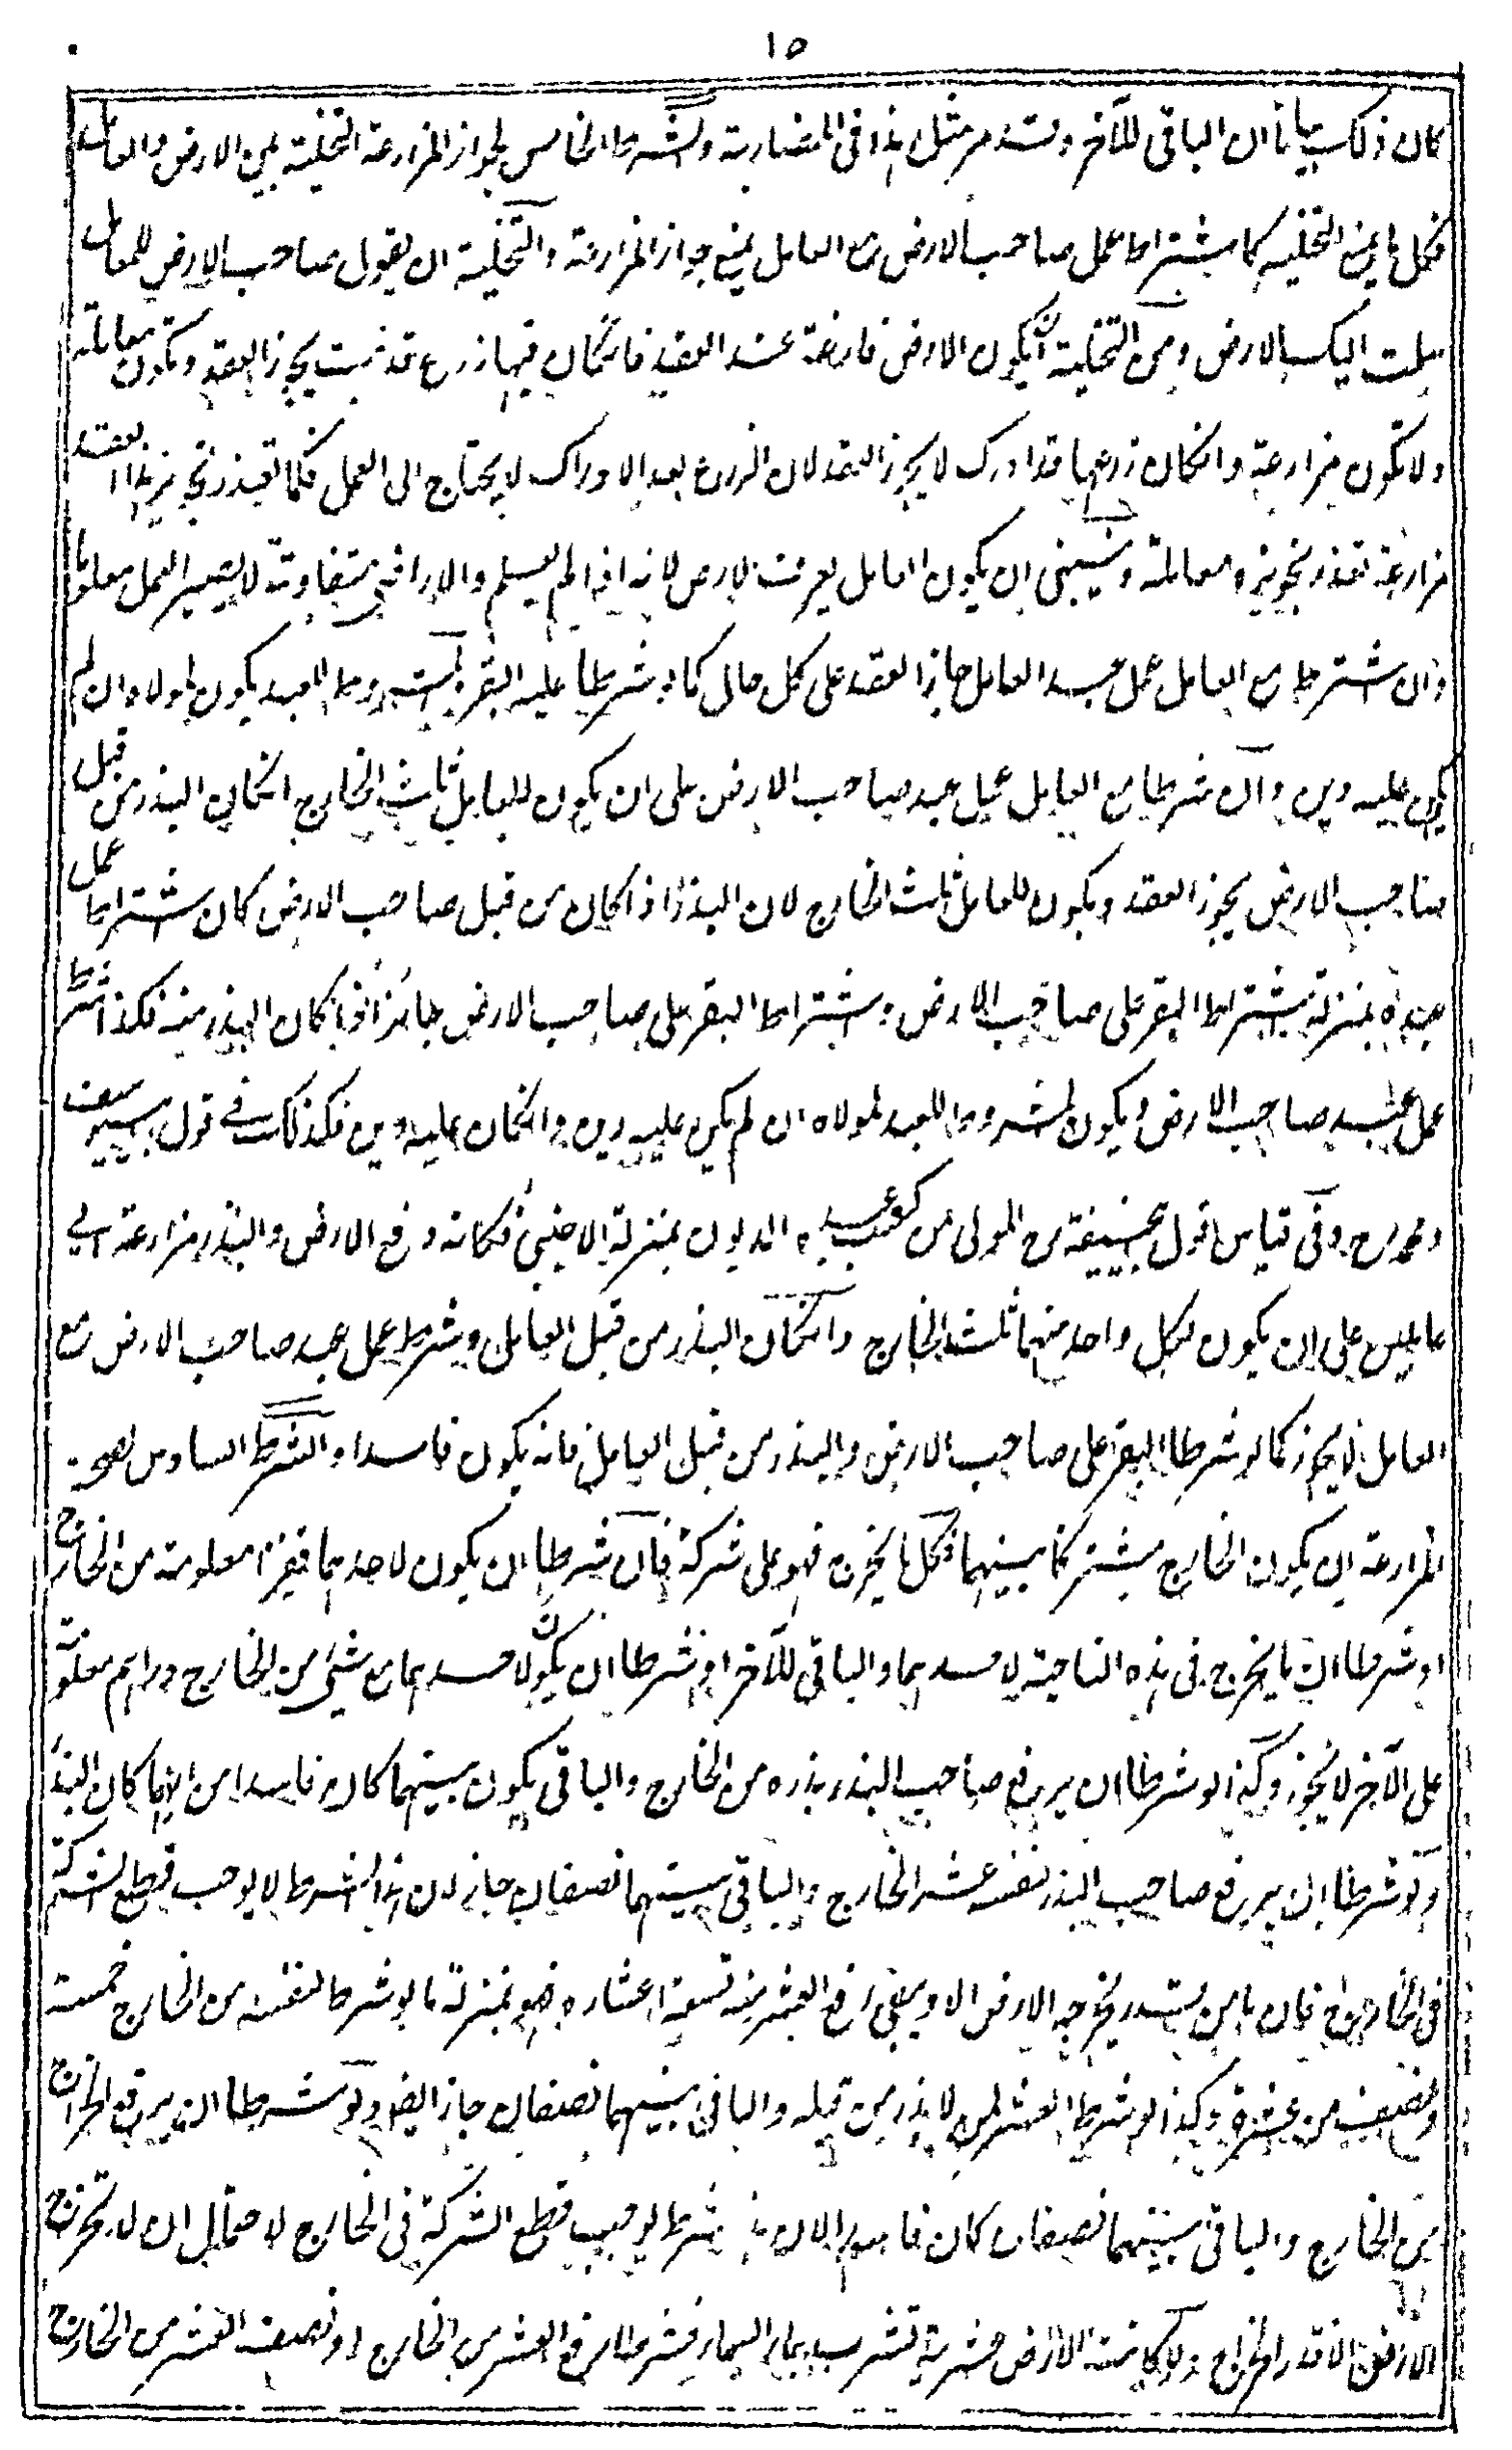 ١٥
كان ذلك بيانا ان الباقى للآخر وقد مر مثل هذا فى المضاربة والشرط الخامس لجواز المزارعة التخلية بين الارض والعامل
فكل ما يمنع التخلية كاشتراط عمل صاحب الارض مع العامل يمنع جواز المزارعة والتخلية ان يقول صاحب الارض للعامل
سلمت اليك الارض ومن التخلية ان يكون الارض فارغة عند العقد فان كان فيها زرع قد نبت يجوز العقد ويكون معاملة
ولا تكون مزارعة وانكان زرعها قد ادرك لا يجوز العقد لان الزرع بعد الادراك لا يحتاج الى العمل فكما تعذر تجويز هذا العقد
مزارعة تعذر تجويزه معاملة وينبغى ان يكون العامل يعرف الارض لانه اذا لم يعلم والاراضى متفاوتة لا يصير العمل معلوما
وان اشترط مع العامل عمل عبد العامل جاز العقد على كل حال كما لو شرطا عليه البقر والمشروط للعبد يكون لمولاه ان لم
يكن عليه دين وان شرطا مع العامل عمل عبد صاحب الارض على ان يكون للعامل ثلث الخارج انكان البذر من قبل
صاحب الارض يجوز العقد ويكون للعامل ثلث الخارج لان البذر اذا كان من قبل صاحب الارض كان اشتراط عمل
عبده بمنزلة اشتراط البقر على صاحب الارض واشتراط البقر على صاحب الارض جائز اذا كان البذر منه فكذا شرط
عمل عبد صاحب الارض ويكون المشروط للعبد لمولاه ان لم يكن عليه دين وانكان عليه دين فكذلك فى قول ابى يوسف
ومحمد رح وفى قياس قول ابى حنيفة رح المولى من كسب عبده المديون بمنزلة الاجنبى فكانه دفع الارض والبذر مزارعة الى
عاملين على ان يكون لكل واحد منهما ثلث الخارج وانكان البذر من قبل العامل وشرط عمل عبد صاحب الارض مع
العامل لا يجوز كما لو شرطا البقر على صاحب الارض والبذر من قبل العامل فانه يكون فاسدا والشرط السادس لصحة
المزارعة ان يكون الخارج مشتركا بينهما فكل ما يخرج فهو على شركة فان شرطا ان يكون لاحدهما قفيزا معلومة من الخارج
او شرطا ان ما يخرج فى هذه الناحية لاحدهما والباقى للآخر او شرطا ان يكون لاحدهما مع شئ من الخارج دراهم معلومة
على الآخر لا يجوز وكذا لو شرطا ان يرفع صاحب البذر بذره من الخارج والباقى يكون بينهما كان فاسدا من ايهما كان البذر
ولو شرطا ان يرفع صاحب البذر لنفسه عشر الخارج والباقى بينهما نصفان جاز لان هذا الشرط لا يوجب قطع الشركة
فى الخارج فان ما من قدر يخرجه الارض الا ويبقى رفع العشر منه تسعة اعشاره فهو بمنزلة ما لو شرط لنفسه من الخارج خمسة
ونصف من عشرة وكذا لو شرط العشر لمن لا بذر من قبله والباقى بينهما نصفان جاز ايضا ولو شرطا ان يرفع الخراج
من الخارج والباقى بينهما نصفان كان فاسدا لان هذا شرط يوجب قطع الشركة فى الخارج لاحتمال ان لا تخرج
الارض الا قدر الخراج ولو كانت الارض عشرية تشرب بماء السماء فشرطا رفع العشر من الخارج او نصف العشر من الخارج